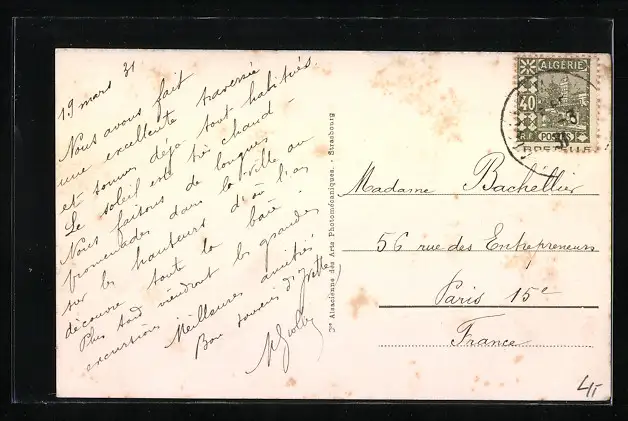 19 mars 31
Nous avons fait
une excellente traversée
et sommes déjà tout habitués.
Le soleil est très chaud -
Nous faisons de longues
promenades dans la ville ou
sur les hauteurs d'où l'on
découvre toute la baie.
Plus tard viendront les grandes
excursions
Meilleures amitiés
Bon souvenir d'Yvette
Sté Alsacienne des Arts Photomécaniques. - Strasbourg
ALGÉRIE
40
POSTES
Madame Bachellier
56 rue des Entrepreneurs
Paris 15e
France
45